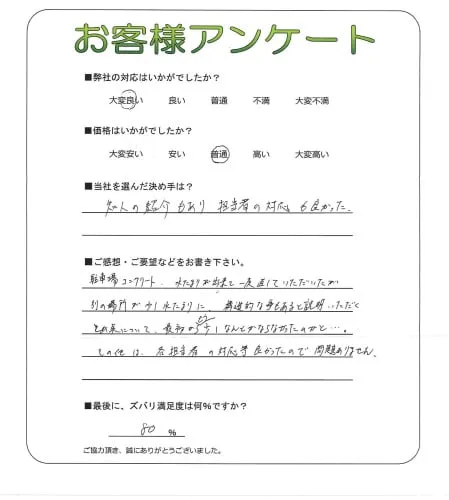 お客様アンケート
■弊社の対応はいかがでしたか？
大変良い 良い 普通 不満 大変不満
■価格はいかがでしたか？
大変安い 安い 普通 高い 大変高い
■当社を選んだ決め手は？
知人の紹介もあり 担当者の対応も良かった。
■ご感想・ご要望などをお書き下さい。
駐車場コンクリート、水たまりが出来て一度直していただいたが
別の場所が少し水たまりに、構造的な事もあると説明いただく
その点について、最初からもう少しなんとかならなかったのかと…。
その他は、各担当者の対応等良かったので問題ありません。
■最後に、ズバリ満足度は何%ですか？
80 %
ご協力頂き、誠にありがとうございました。